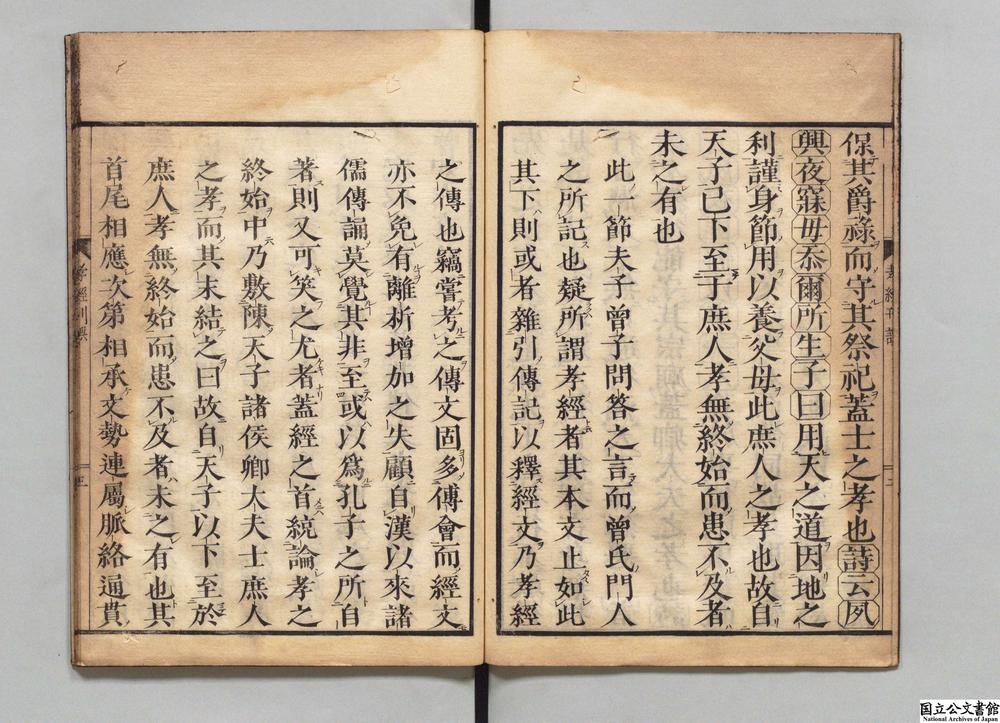 保其爵祿而守其祭祀蓋士之孝也詩云夙
興夜寐毋忝爾所生子曰用天之道因地之
利謹身節用以養父母此庶人之孝也故自
天子已下至于庶人孝無終始而患不及者
未之有也
此一節夫子曾子問答之言而曾氏門人
之所記也疑所謂孝經者其本文止如此
其下則或者雜引傳記以釋經文乃孝經
之傳也竊嘗考之傳文固多傅會而經文
亦不免有離析增加之失顧自漢以來諸
儒傳誦莫覺其非至或以爲孔子之所自
著則又可笑之尤者蓋經之首統論孝之
終始中乃敷陳天子諸侯卿大夫士庶人
之孝而其末結之曰故自天子以下至於
庶人孝無終始而患不及者未之有也其
首尾相應次第相承文勢連屬脈絡通貫
孝經刊誤
国立公文書館
National Archives of Japan